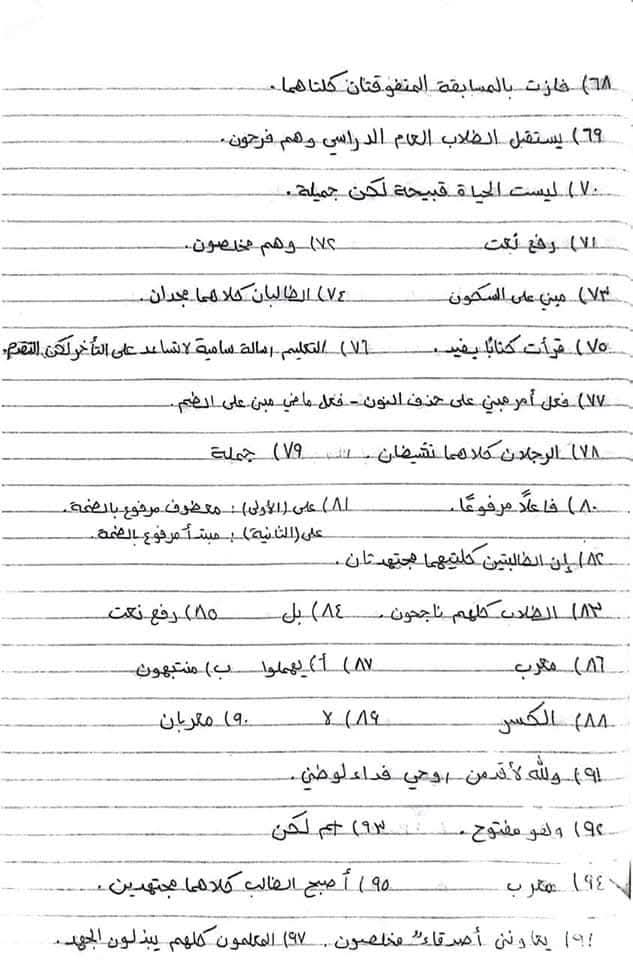 ٦٨) فازت بالمسابقة المتفوقتان كلتاهما.
٦٩) يستقبل الطلاب العام الدراسي وهم فرحون.
٧٠) ليست الحياة قبيحة لكن جميلة.
٧١) رفع نعت ٧٢) وهم مخلصون.
٧٣) مبني على السكون ٧٤) الطالبان كلاهما مجدان.
٧٥) قرأت كتابًا يفيد. ٧٦) التعليم رسالة سامية لا تساعد على التأخر لكن التقدم.
٧٧) فعل أمر مبني على حذف النون - فعل ماضي مبني على الضم.
٧٨) الرجلان كلاهما نشيطان. ٧٩) جملة
٨٠) فاعلًا مرفوعًا. ٨١) على (الأولى): معطوف مرفوع بالضمة.
على (الثانية): مبتدأ مرفوع بالضمة.
٨٢) إن الطالبتين كلتيهما مجتهدتان.
٨٣) الطلاب كلهم ناجحون. ٨٤) بل ٨٥) رفع نعت
٨٦) معرب ٨٧) أ) يهملوا ب) منتبهون
٨٨) الكسر ٨٩) لا ٩٠) معربان
٩١) والله لأقدمن روحي فداء لوطني.
٩٢) وهو مفتوح. ٩٣) لكن
٩٤) معرب ٩٥) أصبح الطالب كلاهما مجتهدين.
يعاونني أصدقاء" مخلصون. ٩٧) المعلمون كلهم يبذلون الجهد.